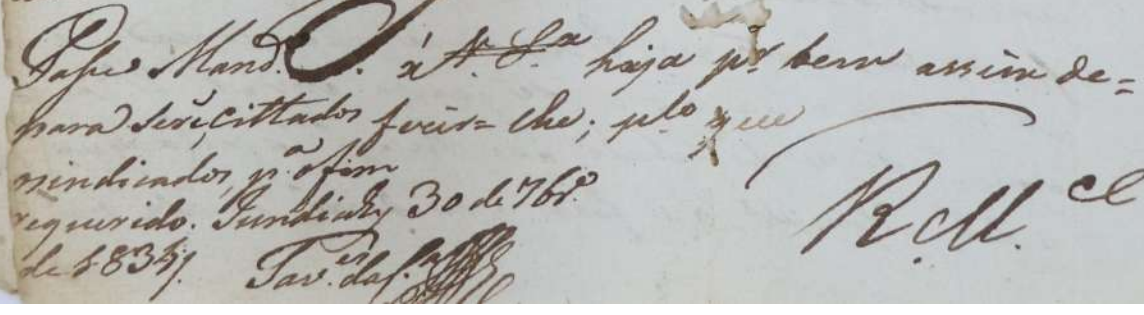 Passe Mand.º P. á V. S.ª haja p.r bem assim de=
para serẽ cittados ferir= lhe; p.lo que
os indicados, p.ª o fim
requerido. Jundiahy 30 de 7br.º
de 1834. Tav.es da S.ª
R. M.ce